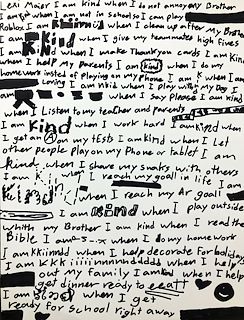 Lexi Maier I am kind when I do not annoy my Brother
I am when I am not in school so I can play
Roblox I am kind when I clean up after my Brother
I am kind when I give my teammate high fives
I am kind when I make Thank you cards I am kind
when I help my parents I am kind when I do my
homework instead of playing on my phone I am k when I am
caring I am kind when I play with my Dog I
am when I say please I am kind
when I Listen to my teacher and parents
I am kind when I work hard I am kined when
I get an A on my tests I am kind when I Let
other people play on my Phone or tablet I am
kind when I share my snaks with others
I am k when I reach my goal in life I am
when I reach my Ar goal
I am kind when I play outside
whith my Brother I am kind when I read the
Bible I am when I do my homework
I am kkiinndd when I help decorate for holidays
I am kkkiiiiinnnnnddddd when I help
out my family I am kind when I help
get dinner ready to eeatt
I am when I get
ready for school right away